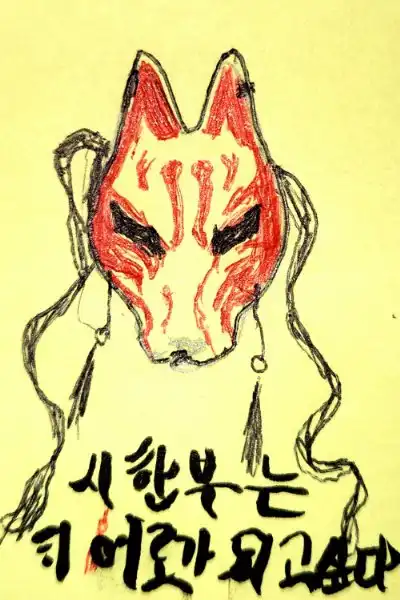 시한부는
히어로가 되고싶다